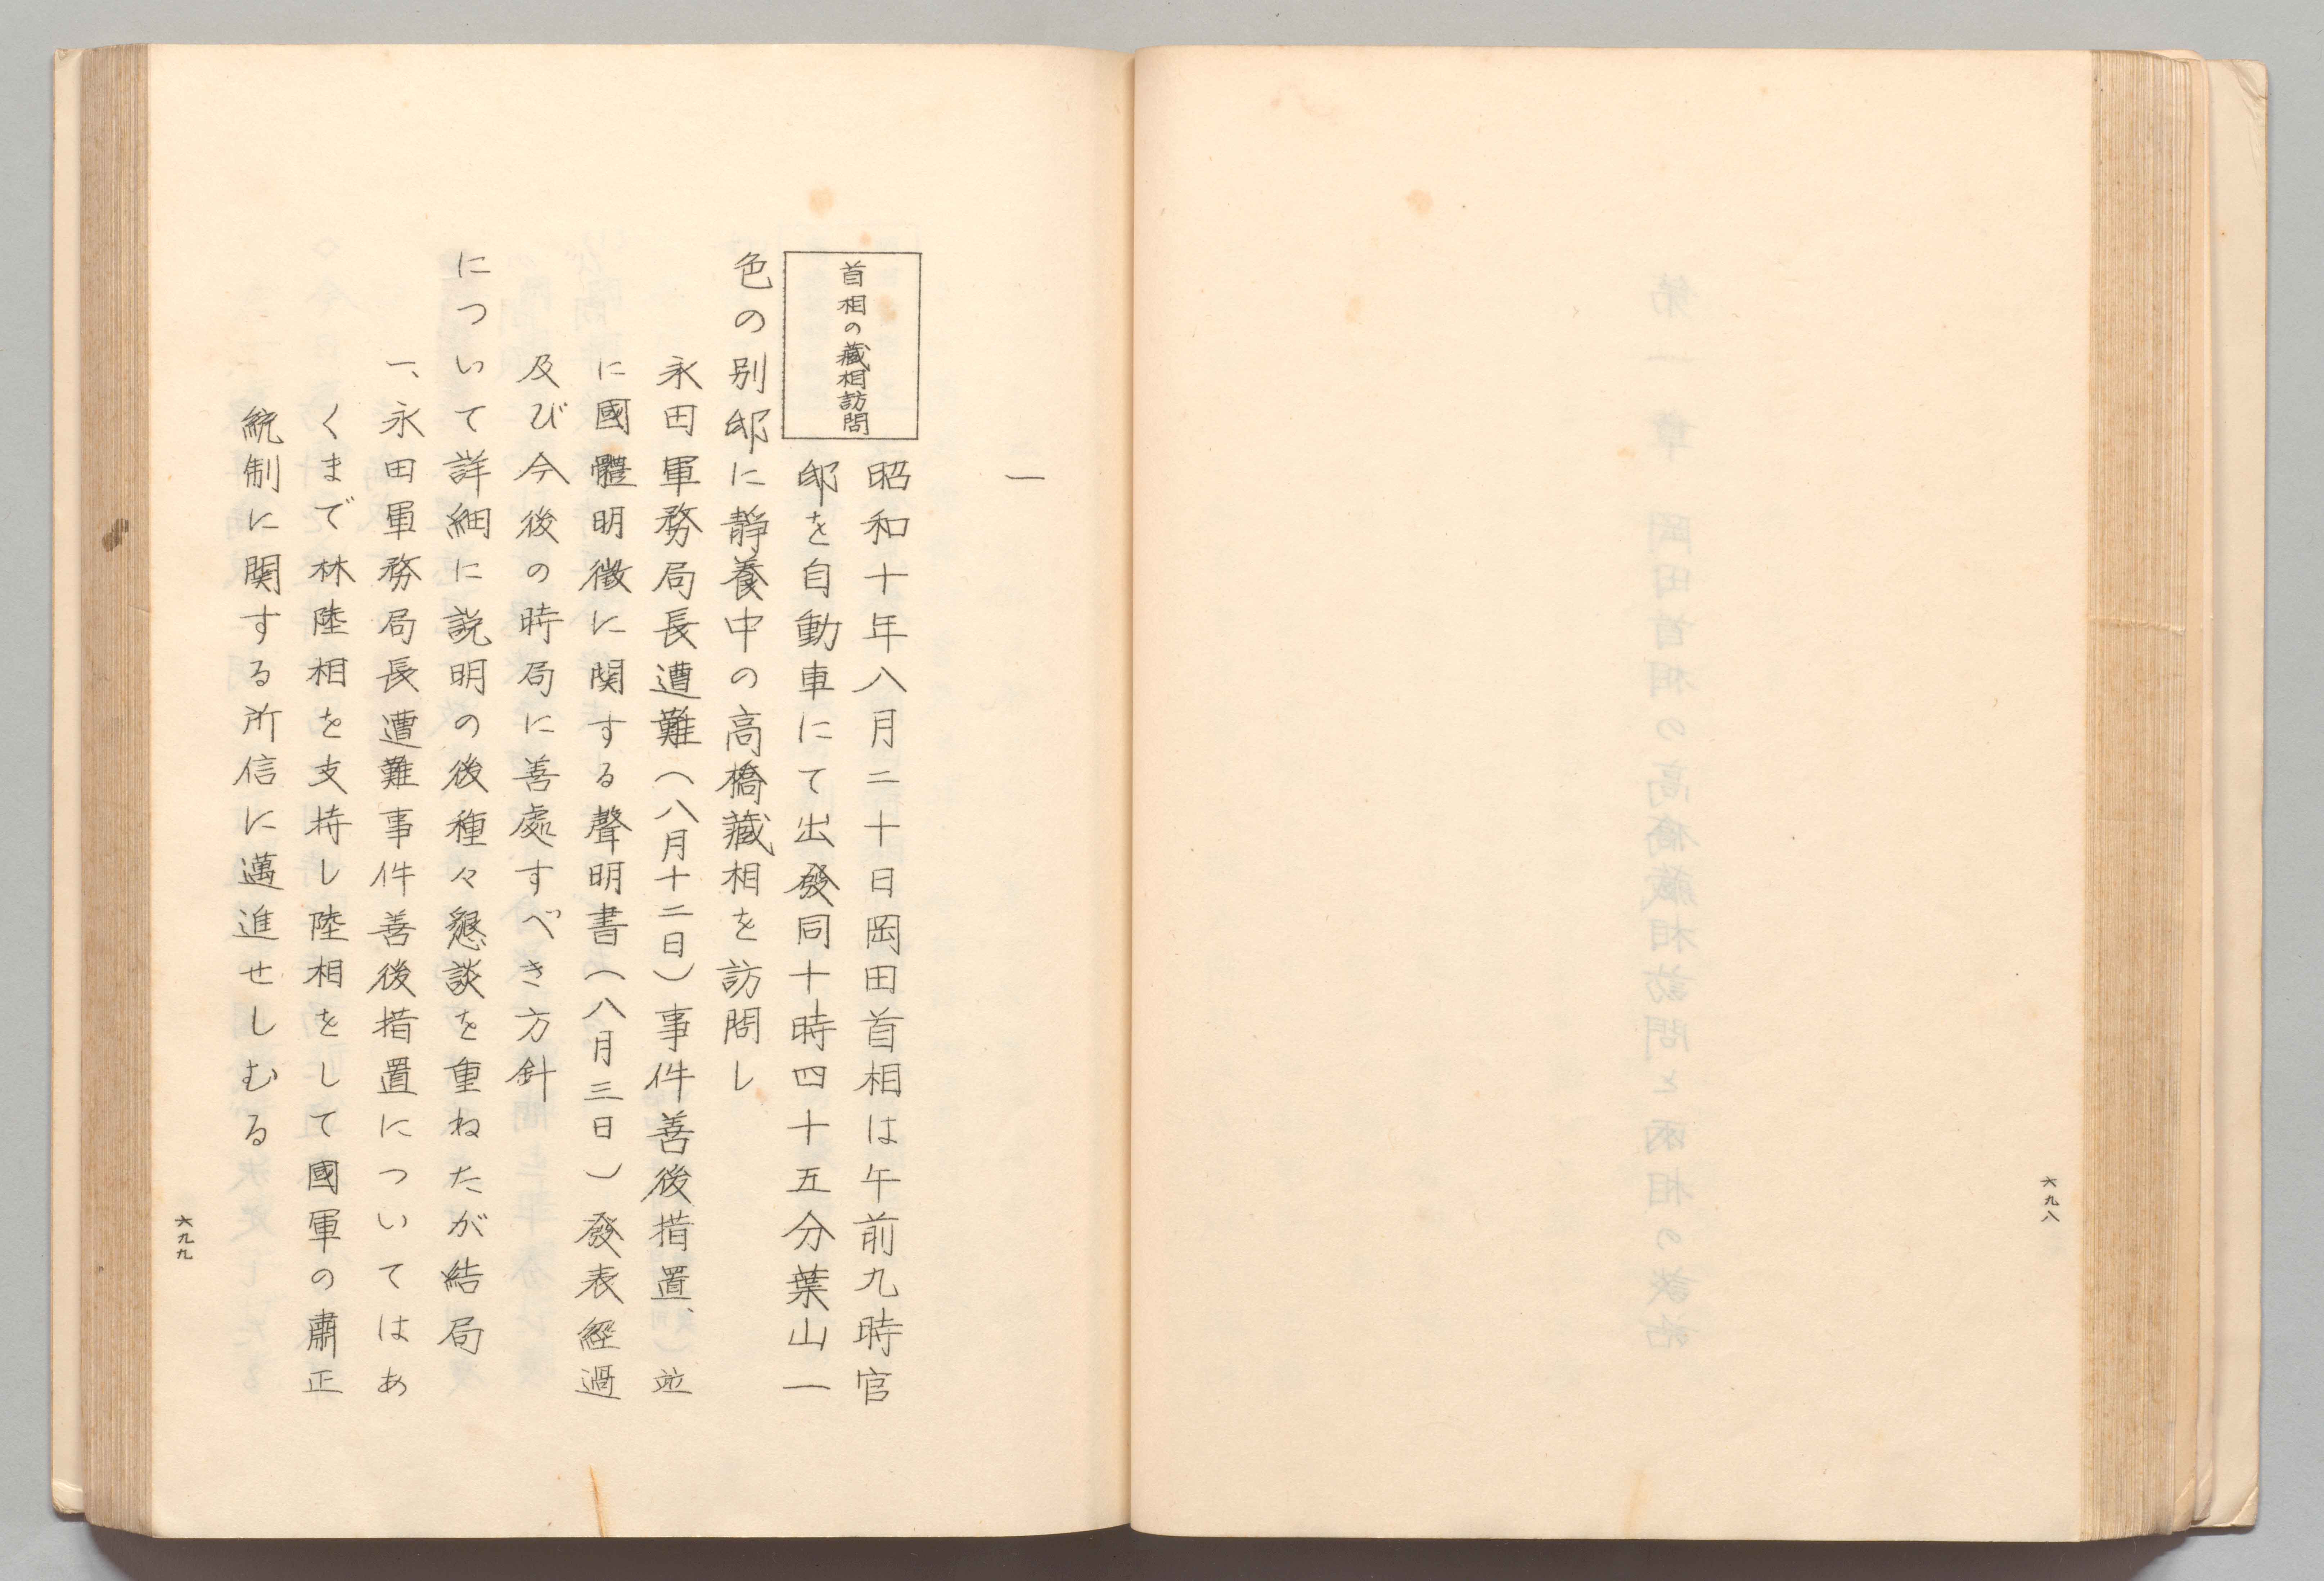 六九八
一
首相の藏相訪問
昭和十年八月二十日岡田首相は午前九時官
邸を自動車にて出發同十時四十五分葉山一
色の別邸に静養中の高橋藏相を訪問し
永田軍務局長遭難（八月十二日）事件善後措置、並
に國體明徴に関する聲明書（八月三日）發表経過
及び今後の時局に善處すべき方針
について詳細に説明の後種々懇談を重ねたが結局
一、永田軍務局長遭難事件善後措置についてはあ
くまで林陸相を支持し陸相をして國軍の肅正
統制に関する所信に邁進せしむる
六九九